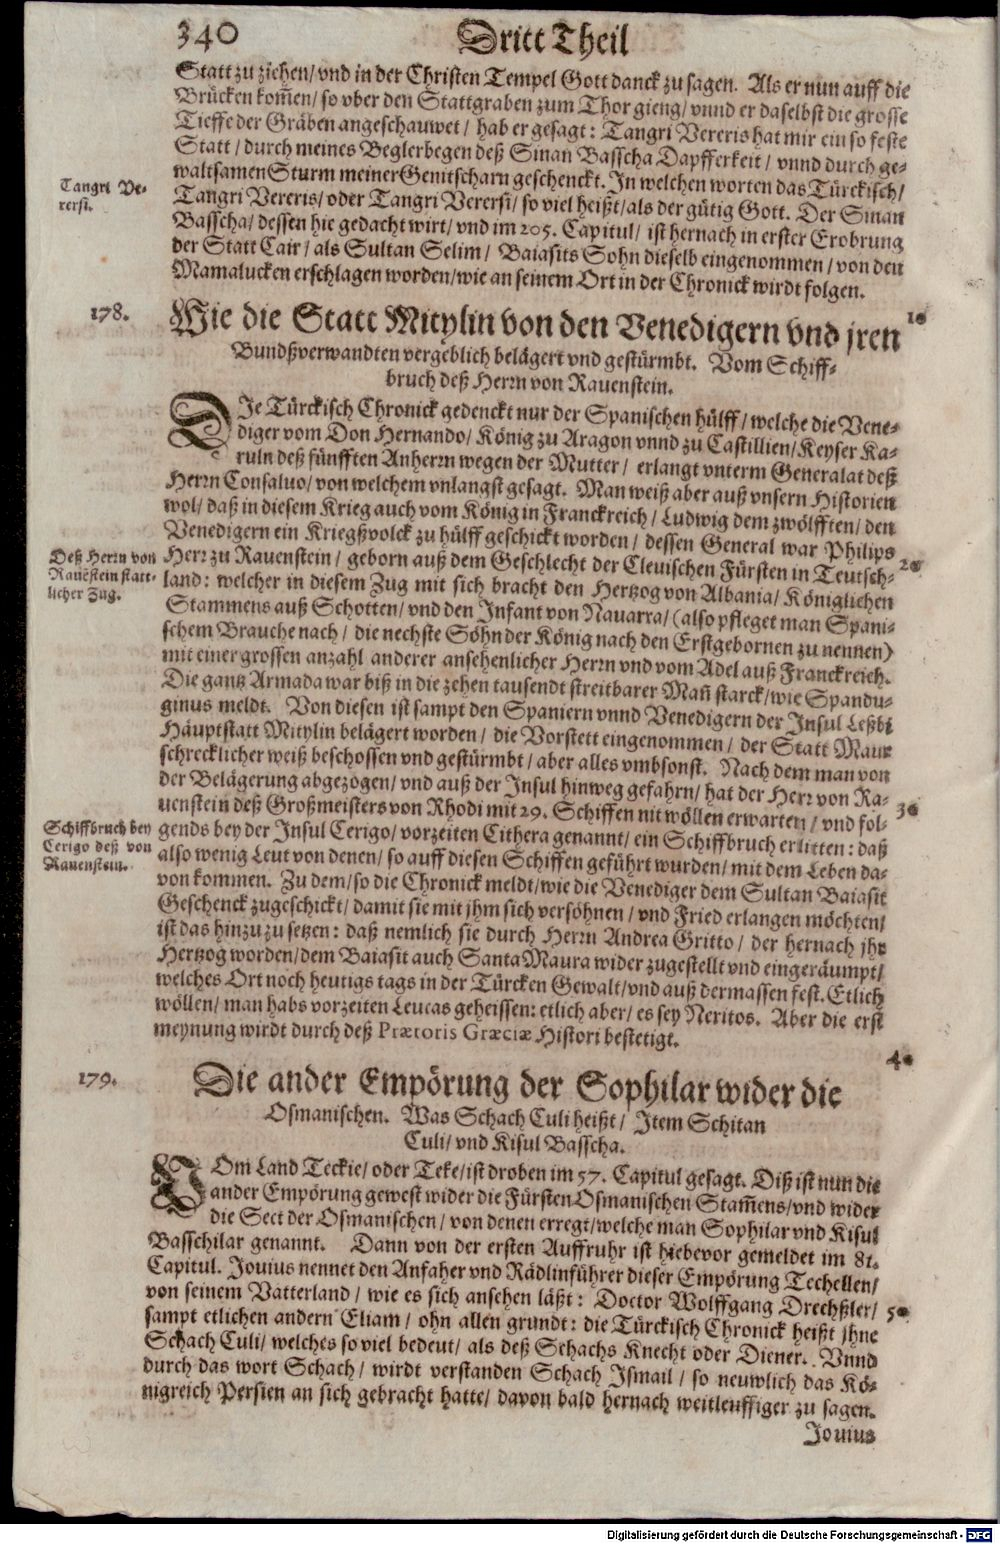 340 Dritt Theil
Statt zu ziehen/ vnd in der Christen Tempel Gott danck zu sagen. Als er nun auff die
Brücken kom̃en/ so vber den Stattgraben zum Thor gieng/ vnnd er daselbst die grosse
Tieffe der Gräben angeschauwet/ hab er gesagt: Tangri Vereris hat mir ein so feste
Statt/ durch meines Beglerbegen deß Sinan Basscha Dapfferkeit/ vnnd durch ge-
waltsamen Sturm meiner Genitscharn geschenckt. In welchen worten das Türckisch/
Tangri Vereris/ oder Tangri Verersi/ so viel heißt/ als der gütig Gott. Der Sinan
Basscha/ dessen hie gedacht wirt/ vnd im 205. Capitul/ ist hernach in erster Eroberung
der Statt Cair/ als Sultan Selim/ Baiasits Sohn dieselb eingenommen/ von den
Mamalucken erschlagen worden/ wie an seinem Ort in der Chronick wirdt folgen.
Tangri Ve-
rersi.
178.
Wie die Statt Mitylin von den Venedigern vnd jren
10
Bundßverwandten vergeblich belägert vnd gestürmbt. Vom Schiff-
bruch deß Herrn von Rauenstein.
DIe Türckisch Chronick gedenckt nur der Spanischen hülff/ welche die Vene-
diger vom Don Hernando/ König zu Aragon vnnd zu Castillien/ Keyser Ka-
ruln deß fünfften Anherrn wegen der Mutter/ erlangt vnterm Generalat deß
Herrn Consaluo/ von welchem vnlangst gesagt. Man weiß aber auß vnsern Historien
wol/ daß in diesem Krieg auch vom König in Franckreich/ Ludwig dem zwölfften/ den
Venedigern ein Kriegßvolck zu hülff geschickt worden/ dessen General war Philips
Herr zu Rauenstein/ geborn auß dem Geschlecht der Cleuischen Fürsten in Teutsch-
20
land: welcher in diesem Zug mit sich bracht den Hertzog von Albania/ Königlichen
Stammens auß Schotten/ vnd den Infant von Nauarra/ (also pfleget man Spani-
schem Brauche nach/ die nechste Söhn der König nach den Erstgebornen zu nennen)
mit einer grossen anzahl anderer ansehenlicher Herrn vnd vom Adel auß Franckreich.
Die gantz Armada war biß in die zehen tausendt streitbarer Mañ starck/ wie Spandu-
ginus meldt. Von diesen ist sampt den Spaniern vnnd Venedigern der Insul Leßbi
Häuptstatt Mitylin belägert worden/ die Vorstett eingenommen/ der Statt Maur
schrecklicher weiß beschossen vnd gestürmbt/ aber alles vmbsonst. Nach dem man von
der Belägerung abgezogen/ vnd auß der Insul hinweg gefahrn/ hat der Herr von Ra-
uenstein deß Großmeisters von Rhodi mit 29. Schiffen nit wöllen erwarten/ vnd fol-
30
gends bey der Insul Cerigo/ vorzeiten Cithera genannt/ ein Schiffbruch erlitten: daß
also wenig Leut von denen/ so auff diesen Schiffen geführt wurden/ mit dem Leben da-
von kommen. Zu dem/ so die Chronick meldt/ wie die Venediger dem Sultan Baiasit
Geschenck zugeschickt/ damit sie mit jhm sich versöhnen/ vnd Fried erlangen möchten/
ist das hinzu zu setzen: daß nemlich sie durch Herrn Andrea Gritto/ der hernach jhr
Hertzog worden/ dem Baiasit auch Santa Maura wider zugestellt vnd eingeräumpt/
welches Ort noch heutigs tags in der Türcken Gewalt/ vnd auß dermassen fest. Etlich
wöllen/ man habs vorzeiten Leucas geheissen: etlich aber/ es sey Neritos. Aber die erst
meynung wirdt durch deß Prætoris Græciæ Histori bestetigt.
Deß Herrn von
Rauẽstein statt-
licher Zug.
Schiffbruch bey
Cerigo deß von
Rauenstein.
40
179.
Die ander Empörung der Sophilar wider die
Osmanischen. Was Schach Culi heißt/ Item Schitan
Culi/ vnd Kisul Basscha.
VOm Land Teckie/ oder Teke/ ist droben im 57. Capitul gesagt. Diß ist nun die
ander Empörung gewest wider die Fürsten Osmanischen Stam̃ens/ vnd wider
die Sect der Osmanischen/ von denen erregt/ welche man Sophilar vnd Kisul
Basschilar genannt. Dann von der ersten Auffruhr ist hiebevor gemeldet im 81.
Capitul. Jouius nennet den Anfaher vnd Rädlinführer dieser Empörung Techellen/
von seinem Vatterland/ wie es sich ansehen läßt: Doctor Wolffgang Drechßler/
50
sampt etlichen andern Eliam/ ohn allen grundt: die Türckisch Chronick heißt jhne
Schach Culi/ welches so viel bedeut/ als deß Schachs Knecht oder Diener. Vnnd
durch das wort Schach/ wirdt verstanden Schach Ismail/ so neuwlich das Kö-
nigreich Persien an sich gebracht hatte/ davon bald hernach weitleuffiger zu sagen.
Jouius
Digitalisierung gefördert durch die Deutsche Forschungsgemeinschaft - DFG